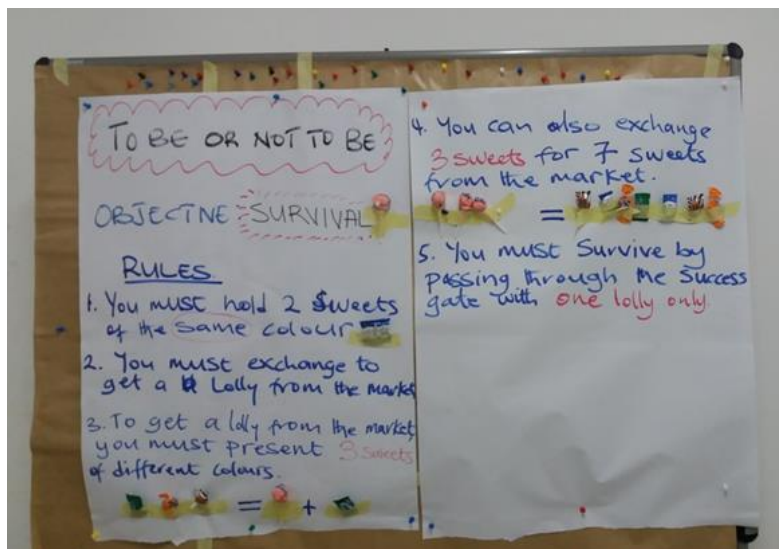 TO BE OR NOT TO BE
OBJECTINE SURVIVAL
RULES
1. You must hold 2 sweets
of the same colour
2. You must exchange to
get a Lolly from the market
3. To get a lolly from the market
you must present 3 sweets
of different colours.
= +
4. You can also exchange
3 sweets for 7 sweets
from the market.
=
5. You must Survive by
passing through the Success
gate with one lolly only